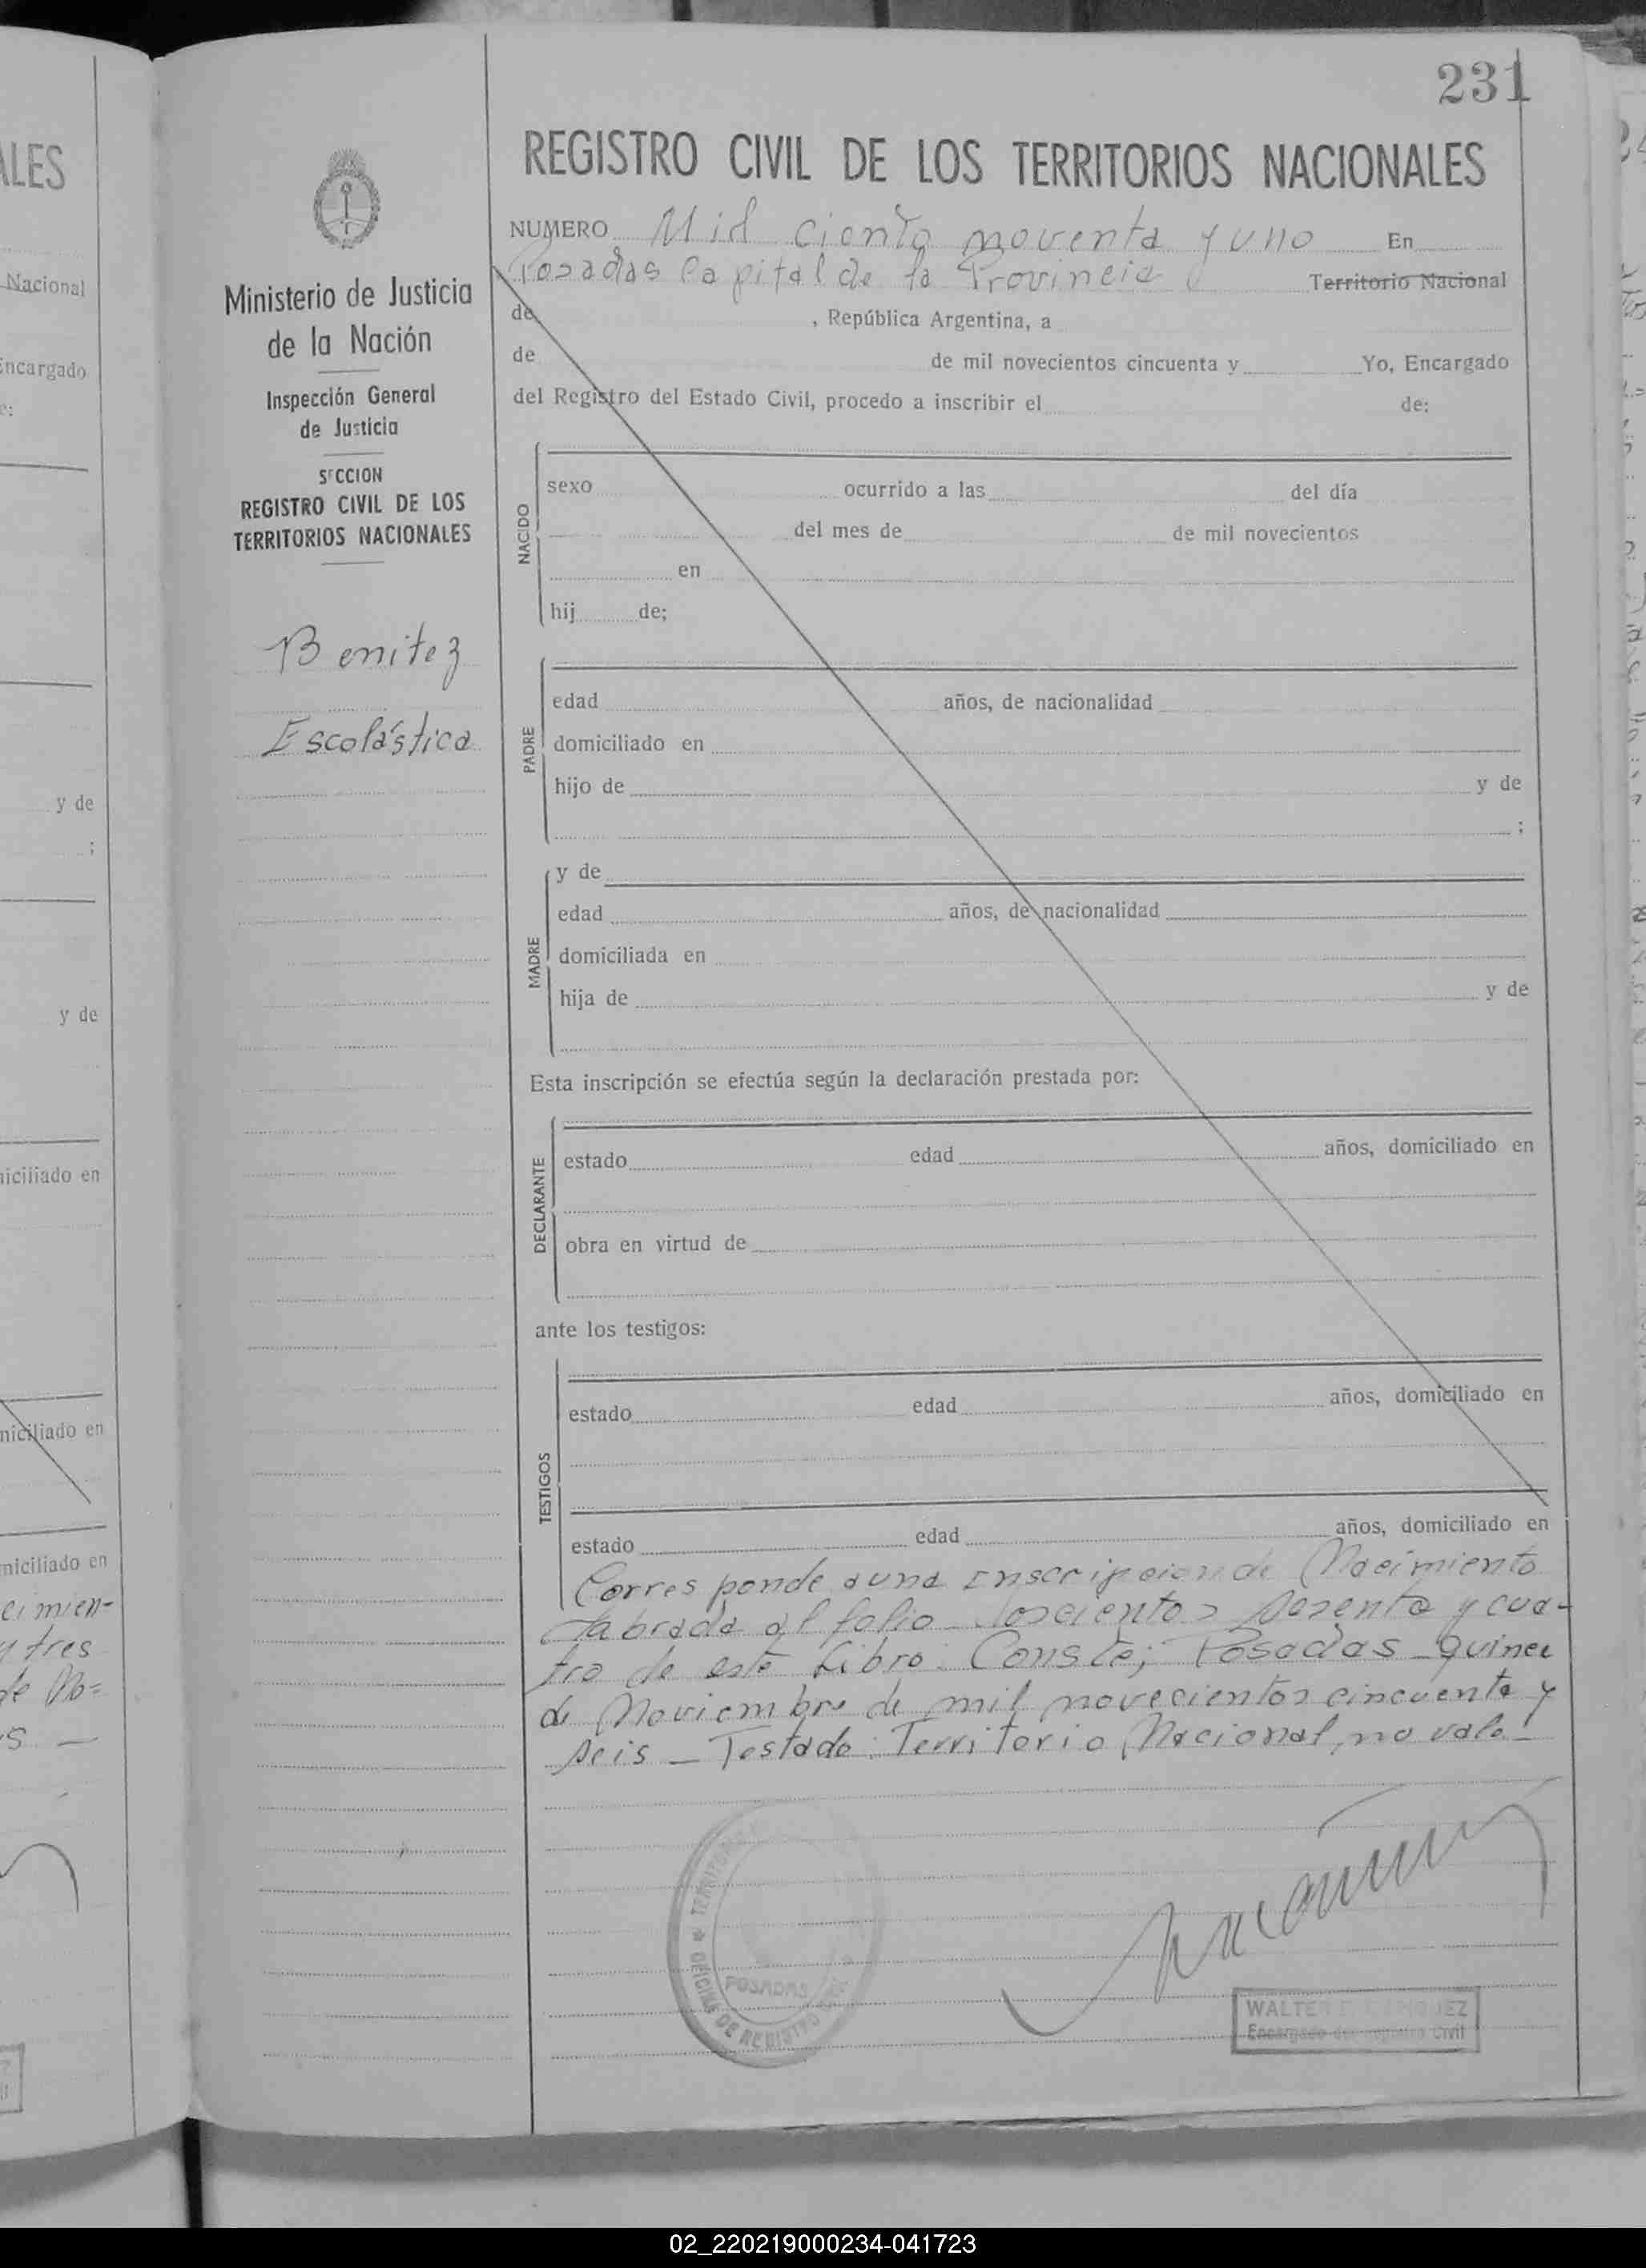 231
REGISTRO CIVIL DE LOS TERRITORIOS NACIONALES
NUMERO Mil ciento noventa y uno En
Posadas Capital de la Provincia Territorio Nacional
de , República Argentina, a
de de mil novecientos cincuenta y Yo, Encargado
del Registro del Estado Civil, procedo a inscribir el de:
Ministerio de Justicia
de la Nación
Inspección General
de Justicia
SECCION
REGISTRO CIVIL DE LOS
TERRITORIOS NACIONALES
Benitez
Escolástica
NACIDO
sexo ocurrido a las del día
del mes de de mil novecientos
en
hij de;
PADRE
edad años, de nacionalidad
domiciliado en
hijo de y de
;
MADRE
y de
edad años, de nacionalidad
domiciliada en
hija de y de
Esta inscripción se efectúa según la declaración prestada por:
DECLARANTE
estado edad años, domiciliado en
obra en virtud de
ante los testigos:
TESTIGOS
estado edad años, domiciliado en
estado edad años, domiciliado en
Corresponde a una Inscripcion de Nacimiento
labrada al folio doscientos sesenta y cua-
tro de este Libro. Conste; Posadas quince
de Noviembre de mil novecientos cincuenta y
seis - Testado: Territorio Nacional, no vale -
OFICINA DE REGISTRO
POSADAS
WALTER
Encargado del registro civil
ALES
Nacional
Encargado
y de
;
y de
miciliado en
miciliado en
miciliado en
cimien-
y tres
de No=
s -
02_220219000234-041723